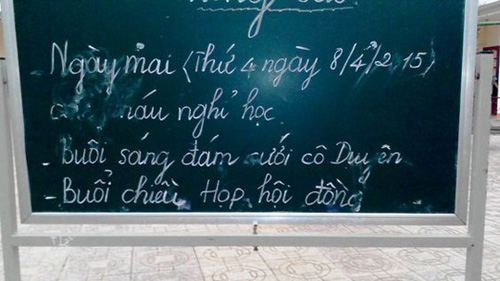 Ngày mai (Thứ 4 ngày 8/4/2 15)
cháu nghỉ học
- Buổi sáng đám cưới cô Duyên
- Buổi chiều Họp hội đồng